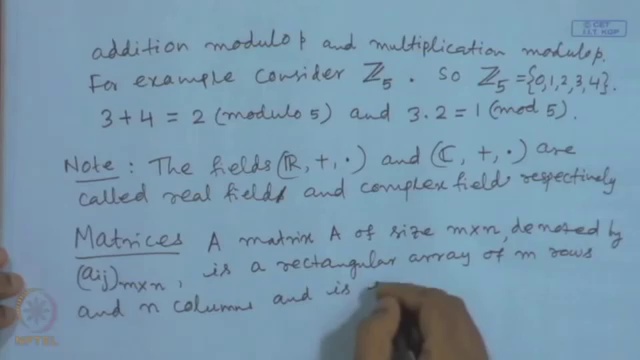 © CET
I.I.T. KGP
addition modulo p and multiplication modulo p.
For example consider ℤ₅. So ℤ₅ = {0,1,2,3,4}.
3+4 = 2 (modulo 5) and 3.2 = 1 (mod 5).
Note : The fields (ℝ, +, ·) and (ℂ, +, ·) are
called real field and complex field respectively
Matrices A matrix A of size m×n, denoted by
(aij)m×n, is a rectangular array of m rows
and n columns and is
NPTEL